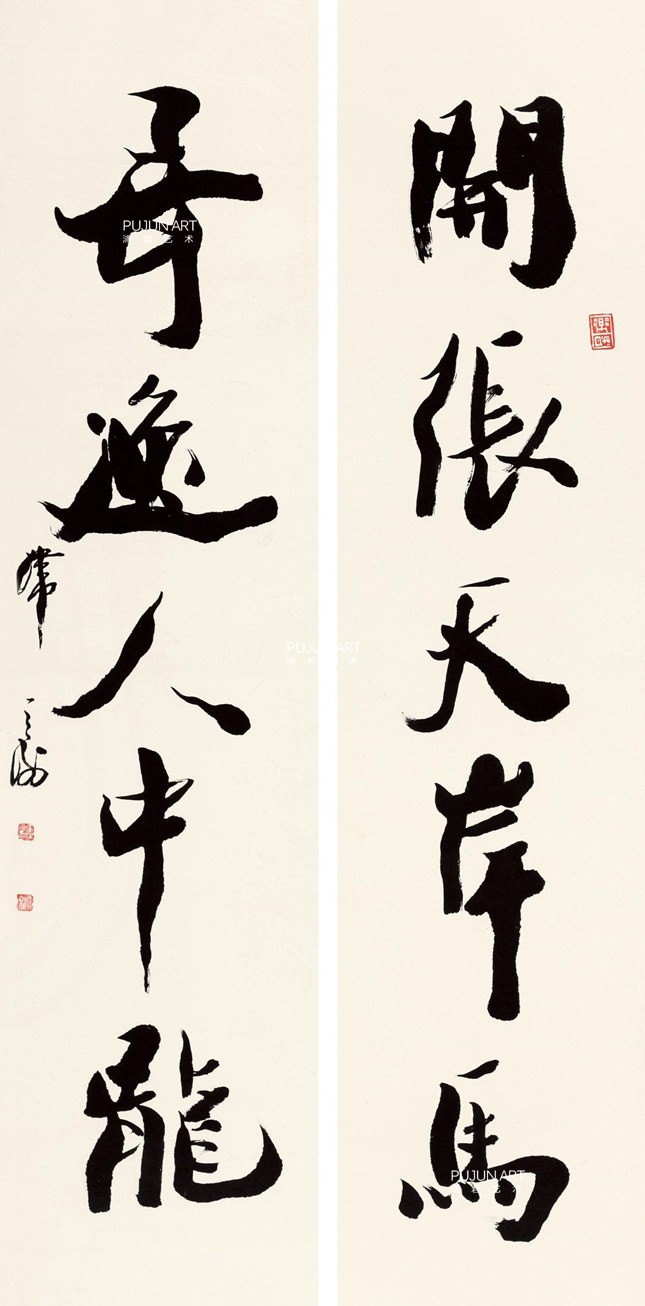 開張天岸馬
奇逸人中龍
PUJUN ART
PUJUN ART
PUJUN ART